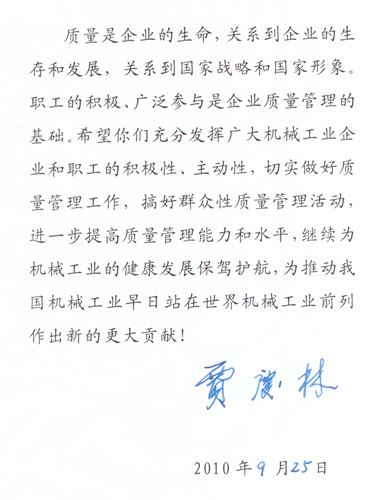 质量是企业的生命，关系到企业的生
存和发展，关系到国家战略和国家形象。
职工的积极、广泛参与是企业质量管理的
基础。希望你们充分发挥广大机械工业企
业和职工的积极性、主动性，切实做好质
量管理工作，搞好群众性质量管理活动，
进一步提高质量管理能力和水平，继续为
机械工业的健康发展保驾护航，为推动我
国机械工业早日站在世界机械工业前列
作出新的更大贡献！
贾庆林
2010 年 9 月 25 日